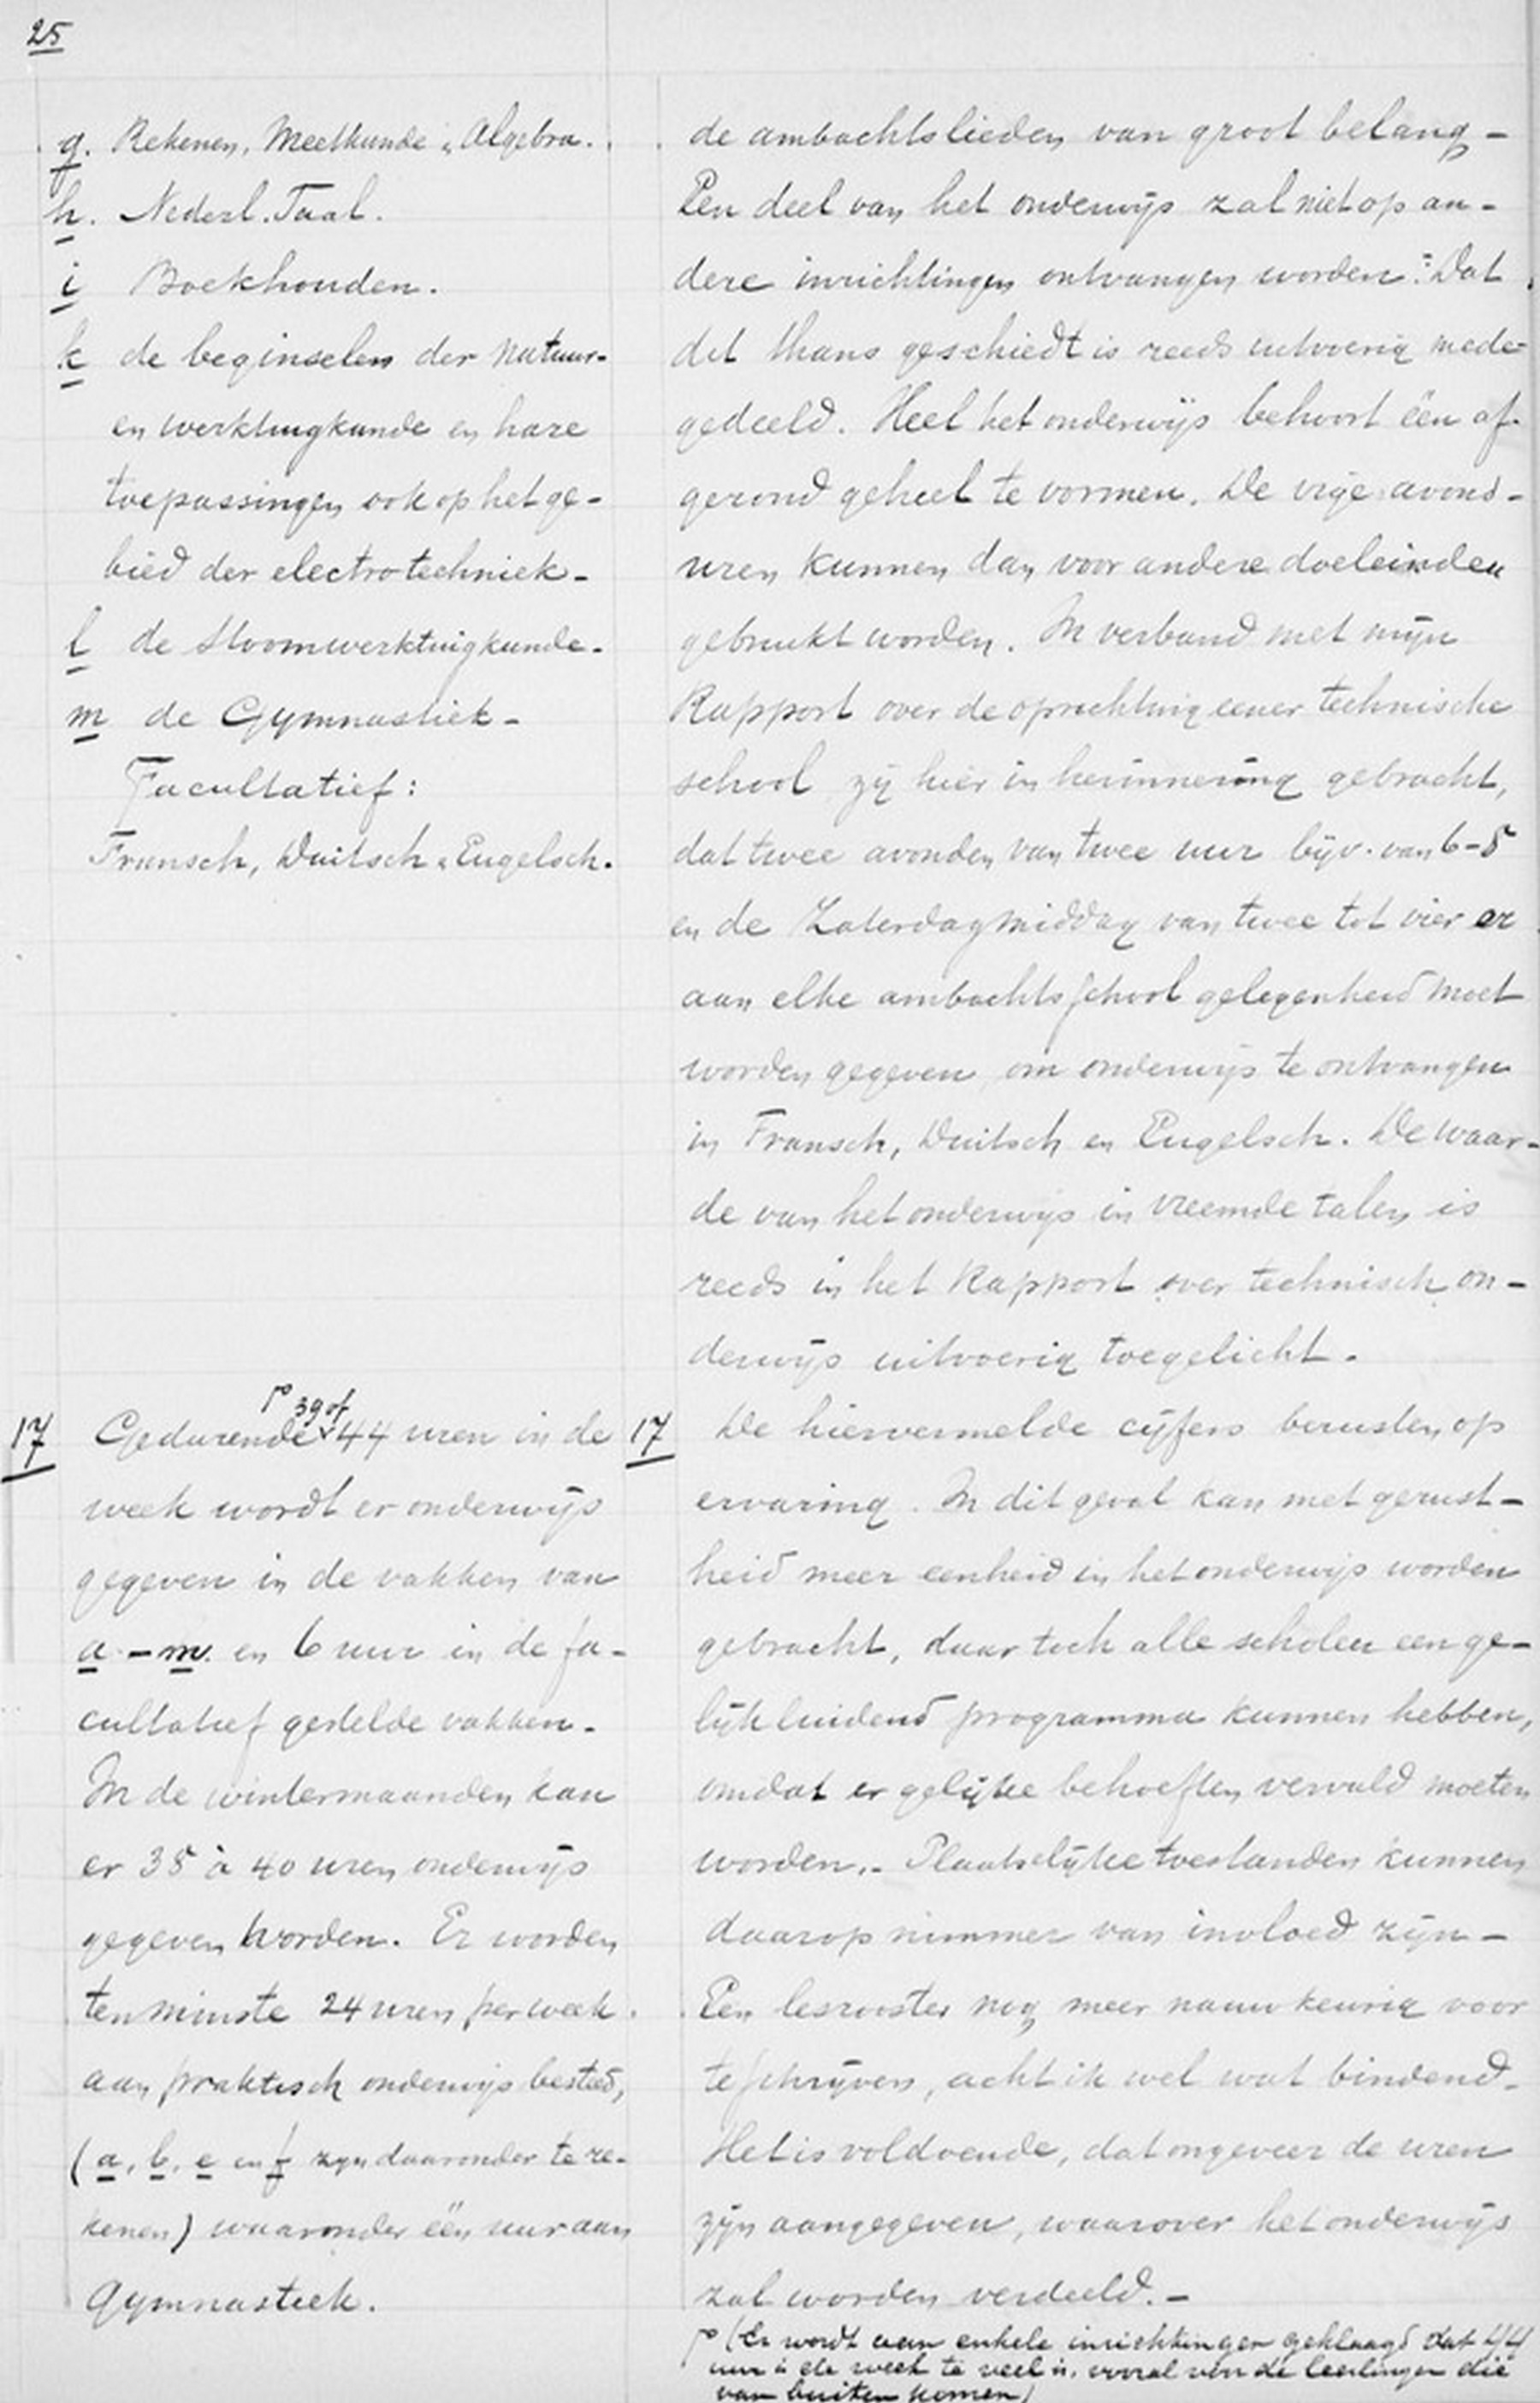 25
g. Rekenen, Meetkunde & Algebra.
h. Nederl. Taal.
i Boekhouden.
k de beginselen der natuur-
en werktuigkunde en hare
toepassingen ook op het ge-
bied der electrotechniek-
l de Stoomwerktuigkunde.
m de Gymnastiek-
Facultatief:
Fransch, Duitsch & Engelsch.
17 Gedurende 39 of 44 uren in de
week wordt er onderwijs
gegeven in de vakken van
a - m. en 6 uur in de fa-
cultatief gestelde vakken-
In de wintermaanden kan
er 38 à 40 uren onderwijs
gegeven worden. Er worden
tenminste 24 uren per week
aan praktisch onderwijs besteed,
(a, b, e en f zijn daaronder te re-
kenen) waaronder één uur aan
Gymnastiek.
de ambachtslieden van groot belang-
Een deel van het onderwijs zal niet op an-
dere inrichtingen ontvangen worden: Dat
dit thans geschiedt is reeds uitvoerig mede-
gedeeld. Heel het onderwijs behoort één af-
gerond geheel te vormen. De vrije avond-
uren kunnen dan voor andere doeleinden
gebruikt worden. In verband met mijn
Rapport over de oprichting eener technische
school zij hier in herinnering gebracht,
dat twee avonden van twee uur bijv. van 6-8
en de Zaterdagmiddag van twee tot vier er
aan elke ambachtsschool gelegenheid moet
worden gegeven om onderwijs te ontvangen
in Fransch, Duitsch en Engelsch. De waar-
de van het onderwijs in vreemde talen is
reeds in het Rapport over technisch on-
derwijs uitvoerig toegelicht.
17 De hiervermelde cijfers berusten op
ervaring. In dit geval kan met gerust-
heid meer eenheid in het onderwijs worden
gebracht, daar toch alle scholen een ge-
lijkluidend programma kunnen hebben,
omdat er gelijke behoeften vervuld moeten
worden.- Plaatselijke toestanden kunnen
daarop nimmer van invloed zijn-
Een lesrooster nog meer nauwkeurig voor
te schrijven, acht ik wel wat bindend-
Het is voldoende, dat ongeveer de uren
zijn aangegeven, waarover het onderwijs
zal worden verdeeld.-
(Er wordt aan enkele inrichtingen geklaagd dat 44
uur in de week te veel is, vooral van de leerlingen die
van buiten komen)